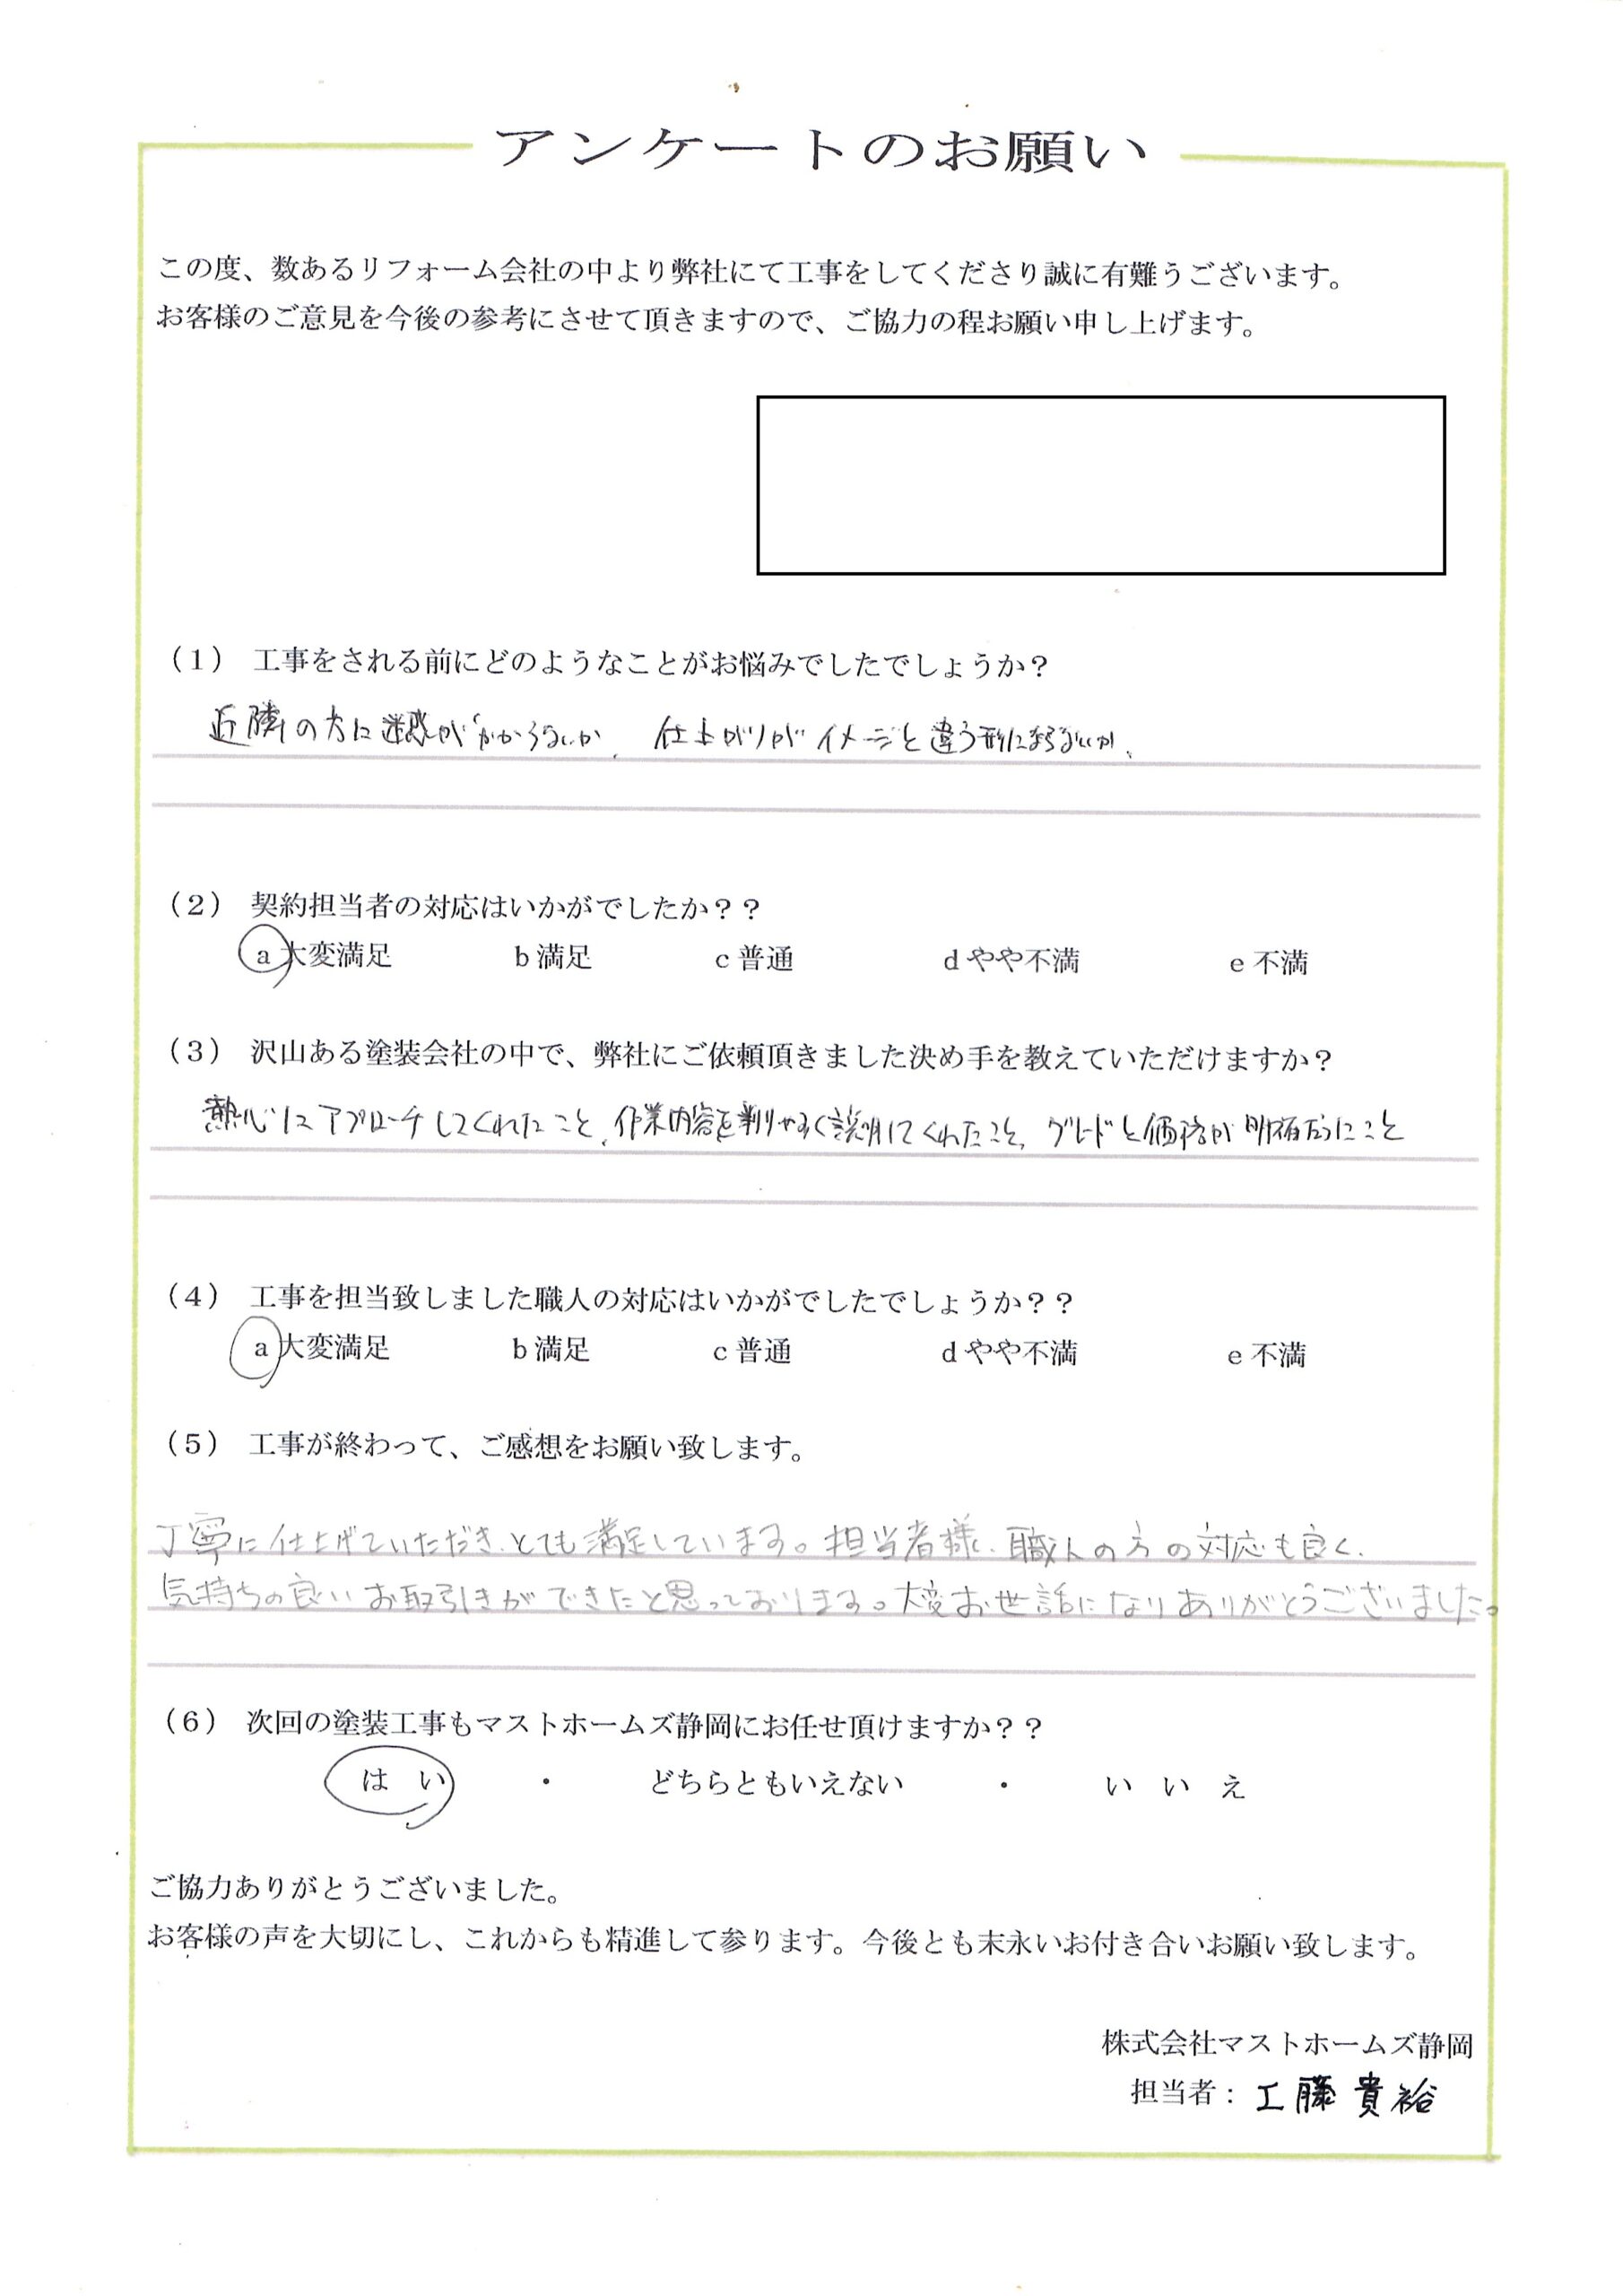 アンケートのお願い
この度、数あるリフォーム会社の中より弊社にて工事をしてくださり誠に有難うございます。
お客様のご意見を今後の参考にさせて頂きますので、ご協力の程お願い申し上げます。
（1） 工事をされる前にどのようなことがお悩みでしたでしょうか？
近隣の方に迷惑がかからないか、仕上がりがイメージと違う形にならないか、
（2） 契約担当者の対応はいかがでしたか？？
a 大変満足 b 満足 c 普通 d やや不満 e 不満
（3） 沢山ある塗装会社の中で、弊社にご依頼頂きました決め手を教えていただけますか？
熱心にアプローチしてくれたこと、作業内容を判りやすく説明してくれたこと、グレードと価格が明確だったこと
（4） 工事を担当致しました職人の対応はいかがでしたでしょうか？？
a 大変満足 b 満足 c 普通 d やや不満 e 不満
（5） 工事が終わって、ご感想をお願い致します。
丁寧に仕上げていただき、とても満足しています。担当者様、職人の方の対応も良く、
気持ちの良いお取引きができたと思っております。大変お世話になりありがとうございました。
（6） 次回の塗装工事もマストホームズ静岡にお任せ頂けますか？？
はい ・ どちらともいえない ・ いいえ
ご協力ありがとうございました。
お客様の声を大切にし、これからも精進して参ります。今後とも末永いお付き合いお願い致します。
株式会社マストホームズ静岡
担当者：工藤貴裕